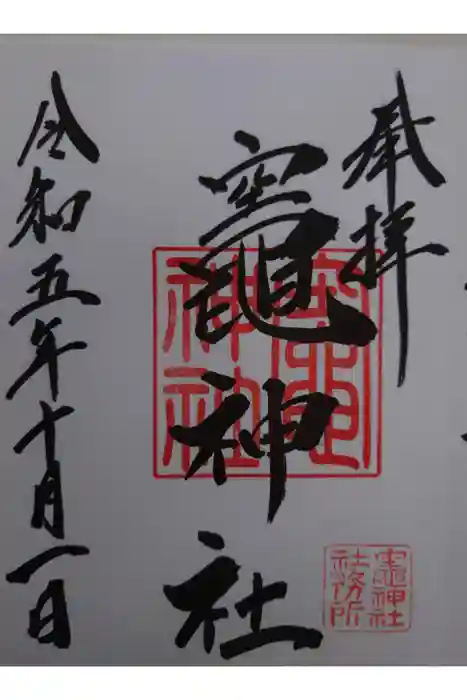 奉拝
竈神社
令和五年十月一日
竈神社
竈神社
社務所